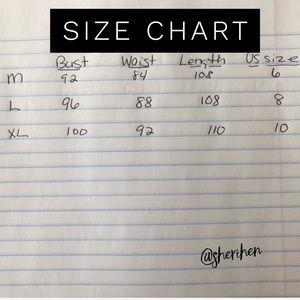 SIZE CHART
Bust Waist Length US size
M 92 84 108 6
L 96 88 108 8
XL 100 92 110 10
@sherihen